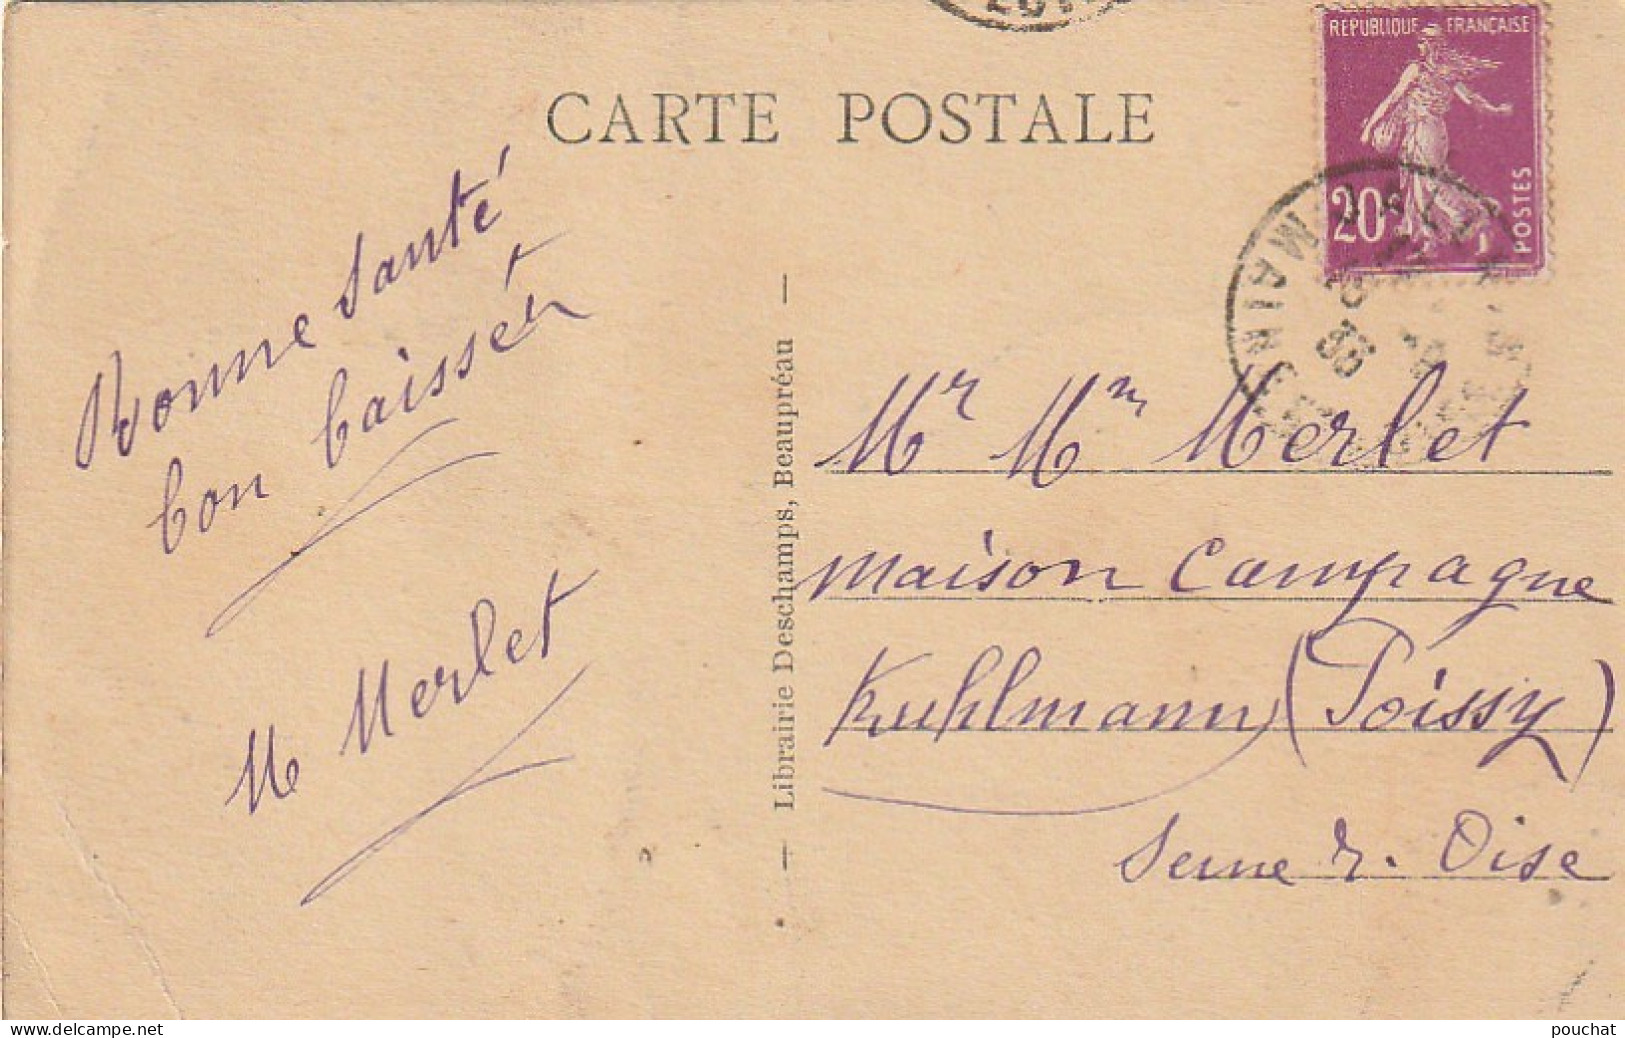 CARTE POSTALE
REPUBLIQUE FRANÇAISE
20c
POSTES
Bonne Santé
bon baissér
M Merlet
— Librairie Deschamps, Beaupréau —
Mr Mm Merlet
maison Campagne
Kuhlmann (Poissy)
Seine & Oise
www.delcampe.net
pouchat